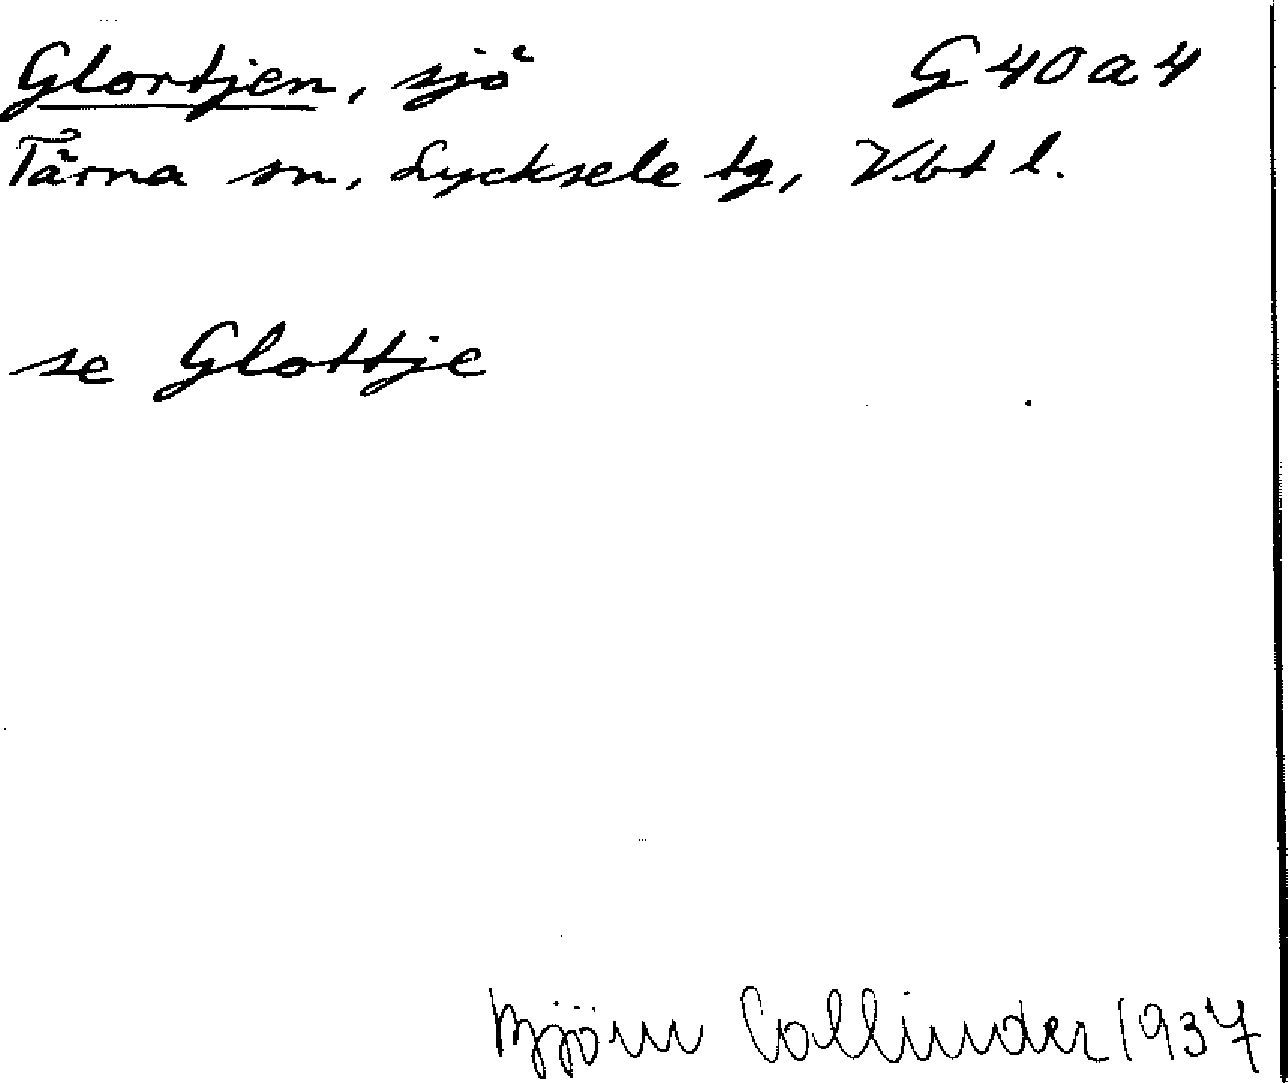 Glortjen, sjö G 40 a 4
Tärna sn, Lycksele tg, Vbt l.
se Glottje
Björn Collinder 1937